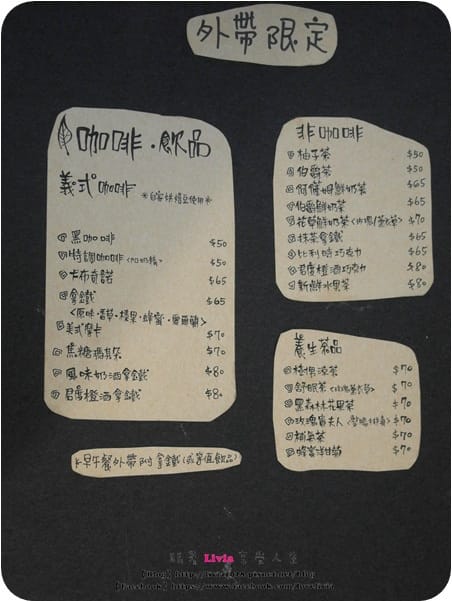 外帶限定
咖啡·飲品
義式咖啡 *自家烘焙豆使用*
黑咖啡 $50
特調咖啡 $50
卡布奇諾 $65
拿鐵 $65
<原味·香草·榛果·蜂蜜·愛爾蘭>
美式摩卡 $70
焦糖瑪其朵 $70
風味奶酒拿鐵 $80
君度橙酒拿鐵 $80
早午餐外帶附拿鐵(或等值飲品)
非咖啡
柚子茶 $50
伯爵茶 $50
阿薩姆鮮奶茶 $65
伯爵鮮奶茶 $65
花草鮮奶茶 $70
抹茶拿鐵 $65
比利時巧克力 $65
君度橙酒巧克力 $80
新鮮水果茶 $80
養生茶品
$70
舒眠茶 $70
黑森林花果茶 $70
玫瑰貴夫人 $70
補氣茶 $70
蜂蜜洋甘菊 $70
Livia